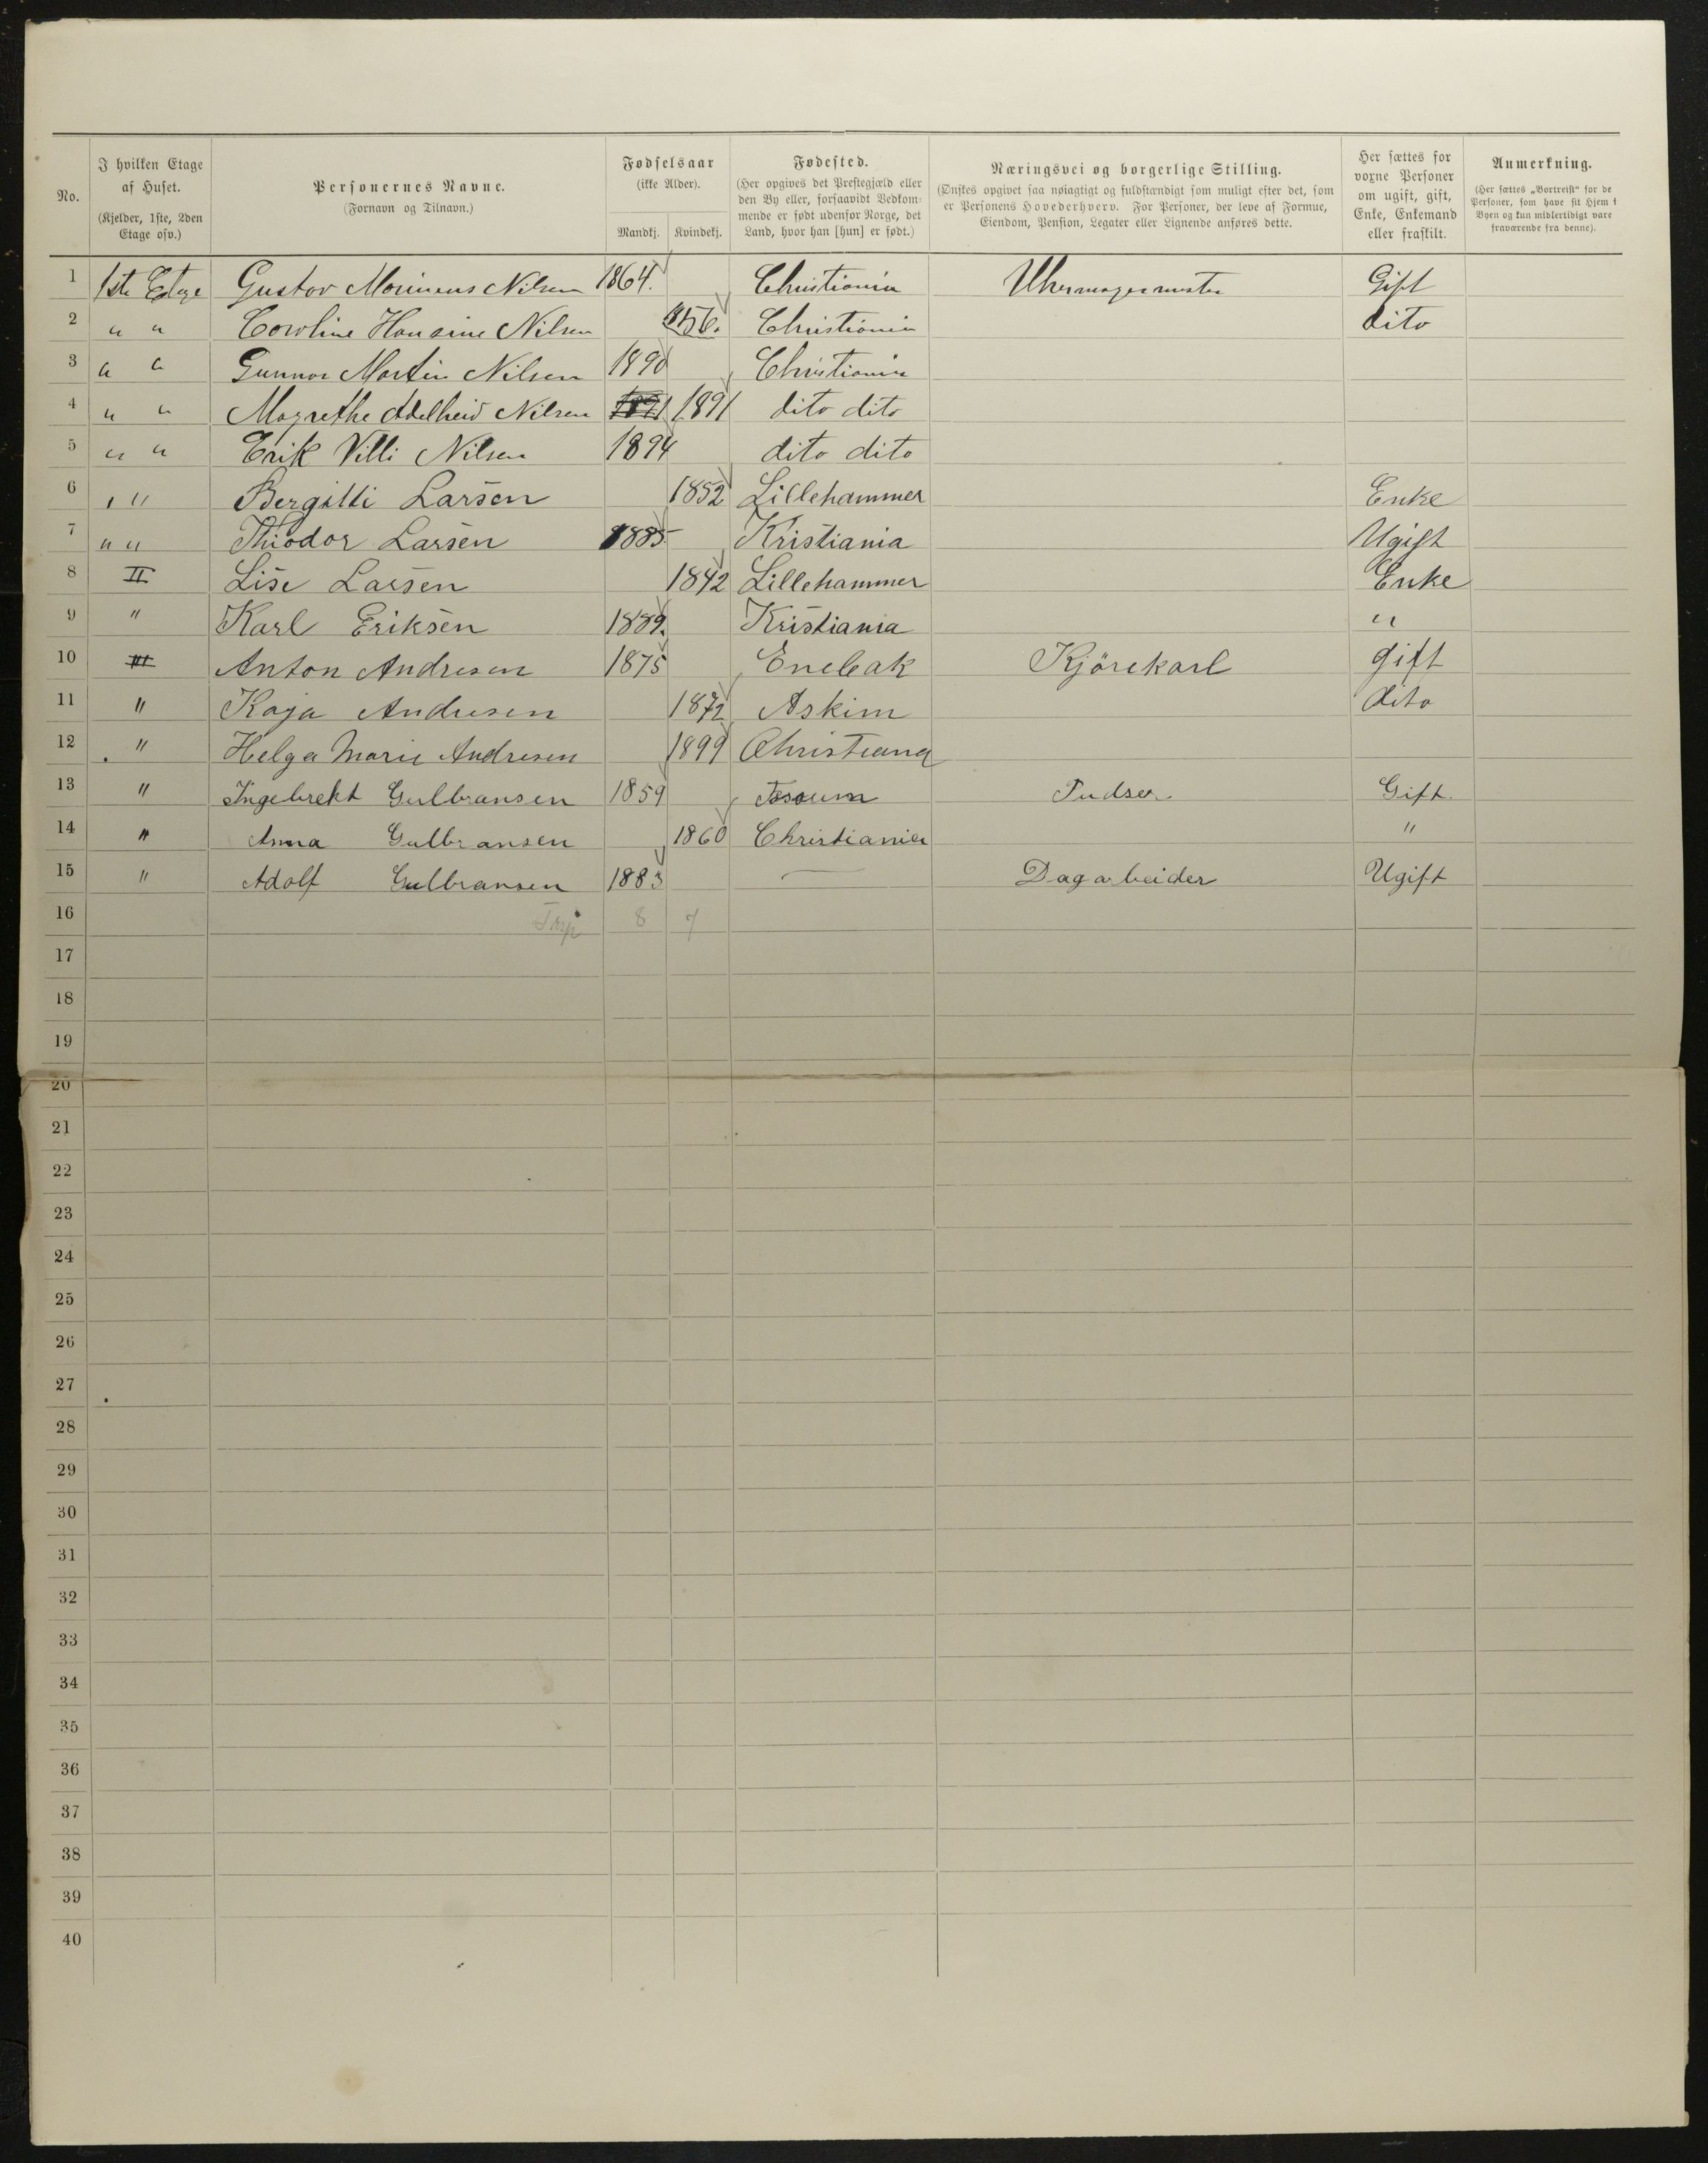 No.
I hvilken Etage
af Huset.
(Kjelder, 1ste, 2den
Etage osv.)
Personernes Navne.
(Fornavn og Tilnavn.)
Fødselsaar
(ikke Alder).
Mandkj. Kvindekj.
Fødested.
(Her opgives det Prestegjæld eller
den By eller, forsaavidt Vedkom-
mende er født udenfor Norge, det
Land, hvor han [hun] er født.)
Næringsvei og borgerlige Stilling.
(Ønskes opgivet saa nøiagtigt og fuldstændigt som muligt efter det, som
er Personens Hovederhverv. For Personer, der leve af Formue,
Eiendom, Pension, Legater eller Lignende anføres dette.
Her sættes for
voxne Personer
om ugift, gift,
Enke, Enkemand
eller fraskilt.
Anmerkning.
(Her sættes „Bortreist“ for de
Personer, som have sit Hjem i
Byen og kun midlertidigt vare
fraværende fra denne).
1 1ste Etage Gustav Nilsen 1864. Christiania Uhrmagermester Gift
2 " " Nilsen Christiania dito
3 " " Gunnar Martin Nilsen 1890 Christiania
4 " " Magrethe Adelheid Nilsen 1891 1891 dito dito
5 " " Erik Villi Nilsen 1894 dito dito
6 " " Bergitti Larsen 1852 Lillehammer Enke
7 " " Thiodor Larsen 1885 Kristiania Ugift
8 II Lise Larsen 1842 Lillehammer Enke
9 " Karl Eriksen 1889. Kristiania "
10 III Anton Andresen 1875 Enebak Kjörekarl gift
11 " Kaja Andresen 1872 Askim dito
12 " Helga Marie Andresen 1899 Christiana
13 " Ingebrekt Gulbransen 1859 Pudser Gift.
14 " Anna Gulbransen 1860 Christiania "
15 " Adolf Gulbransen 1883 — Dagarbeider Ugift
16 8 7
17
18
19
20
21
22
23
24
25
26
27
28
29
30
31
32
33
34
35
36
37
38
39
40